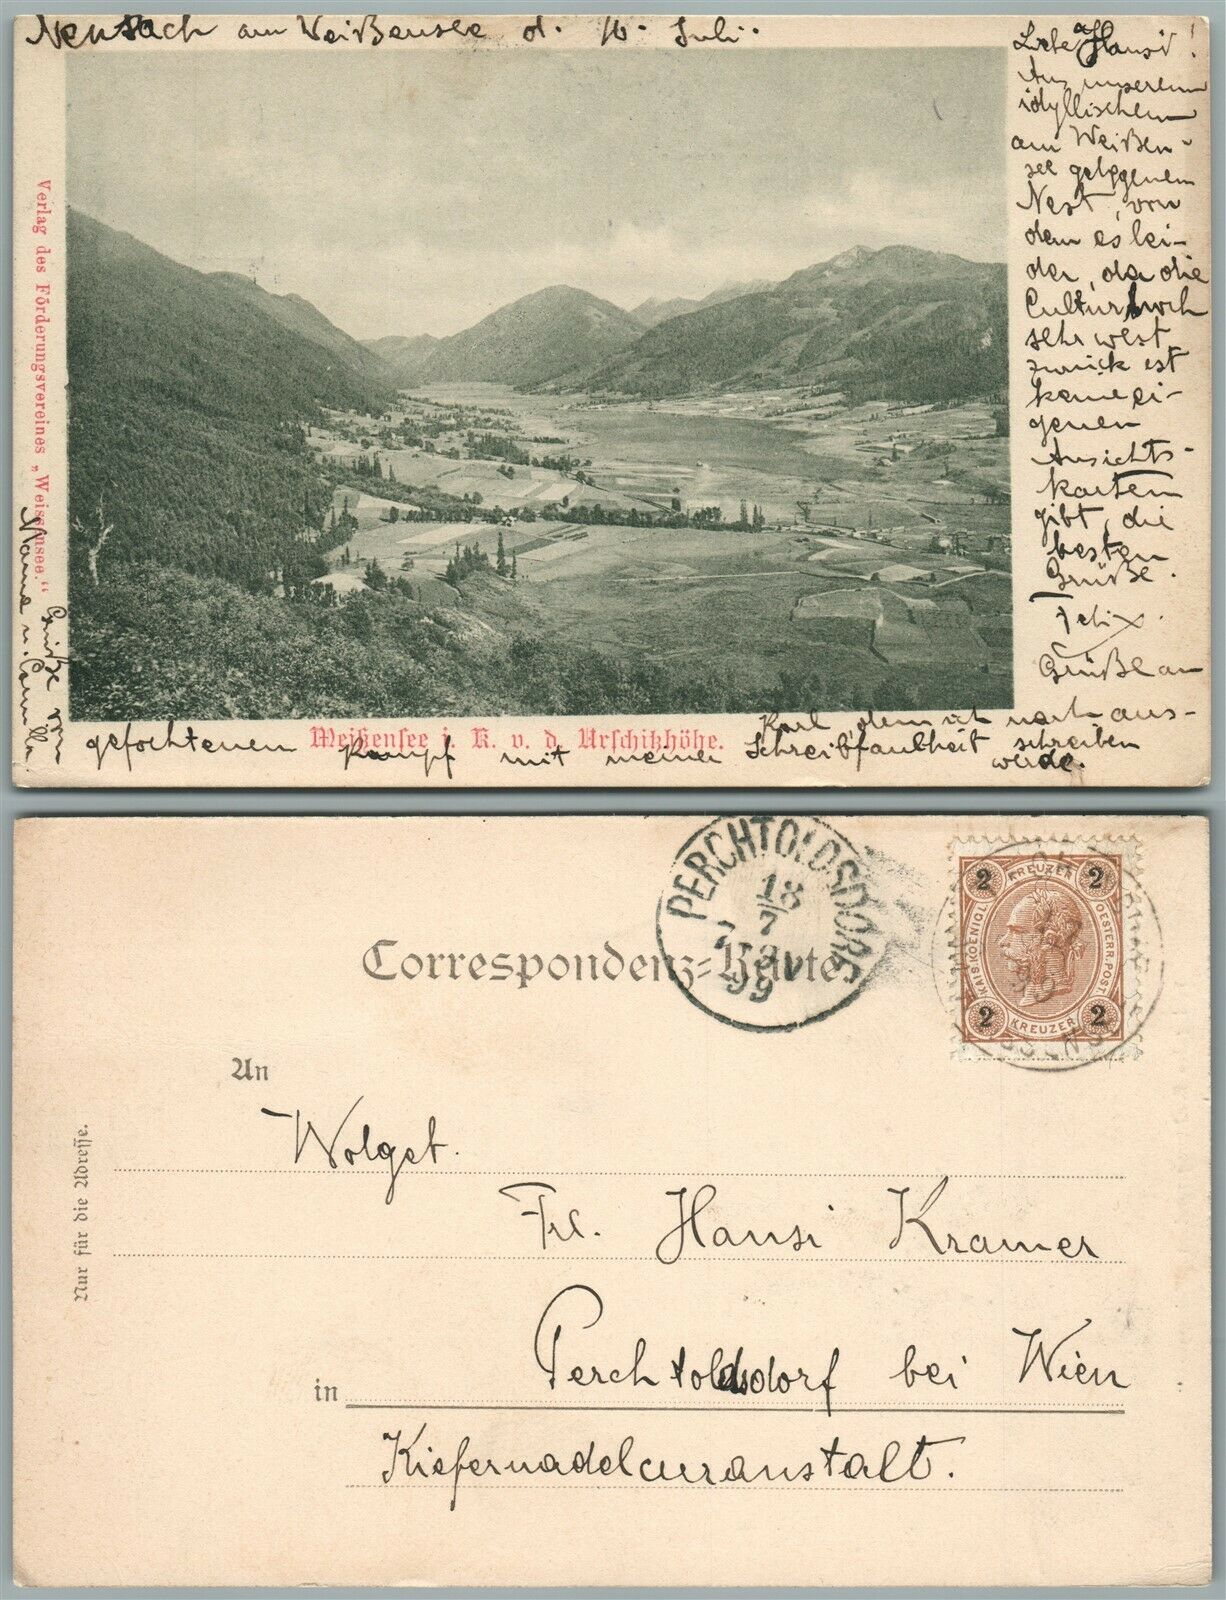 Neusach am Weißensee d. 16. Juli.
Liebe Hansi!
Aus unserem
idyllischem
am Weißen-
see gelegenem
Nest, von
dem es lei-
der, da die
Cultur noch
sehr weit
zurück ist
keine ei-
genen
Ansichts-
karten
gibt, die
besten
Grüße.
Felix.
Grüße an
Karl, dem ich nach aus-
gefochtenem Kampf mit meiner Schreibfaulheit schreiben
werde.
Grüße von
Mama u. Camilla.
Verlag des Förderungsvereines „Weissensee.“
Weißensee i. K. v. d. Urschitzhöhe.
PERCHTOLDSDORF
18/7
99
2 KREUZER 2
KAIS. KOENIGL. OESTERR. POST
2 KREUZER 2
17
99
Correspondenz-Karte
An
Wolget.
Frl. Hansi Kramer
in Perchtoldsdorf bei Wien
Kiefernadelcuranstalt.
Nur für die Adresse.